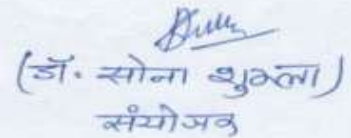 (डॉ. सोना शुक्ला)
संयोजक